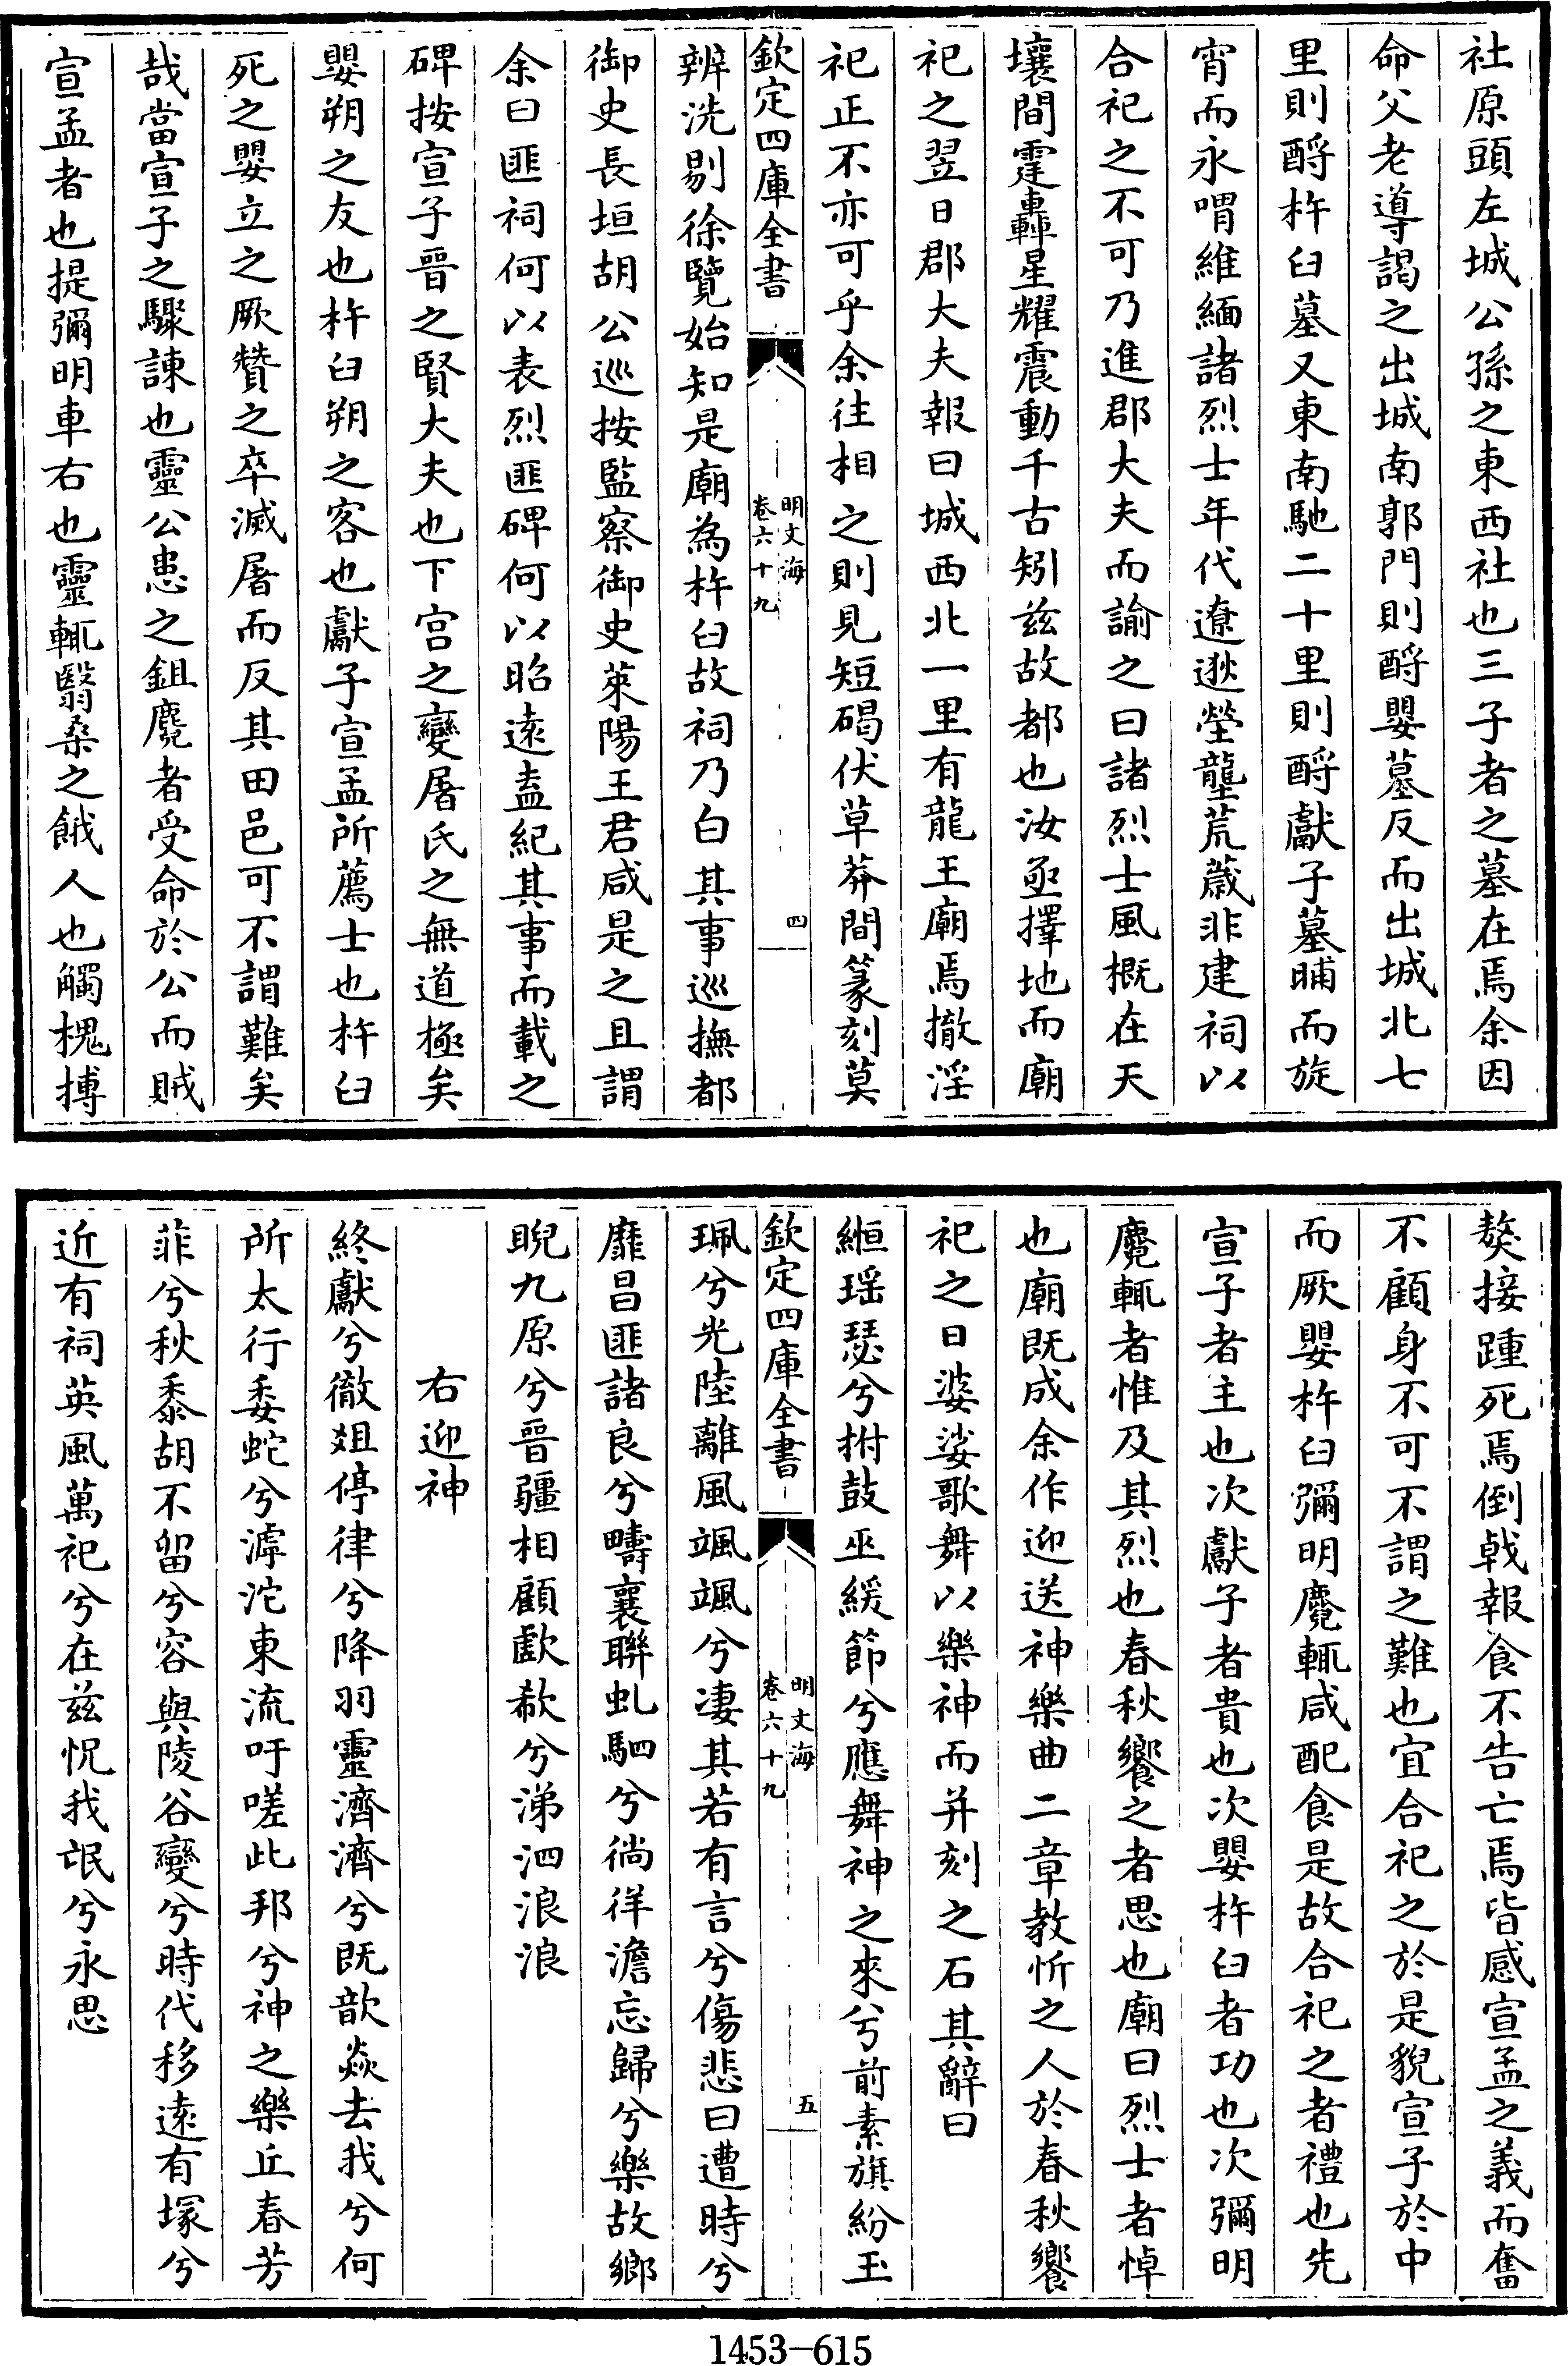 社原頭左城公孫之東西社也三子者之墓在焉余因
命父老導謁之出城南郭門則酹嬰墓反而出城北七
里則酹杵臼墓又東南馳二十里則酹獻子墓晡而旋
宵而永喟維緬諸烈士年代遼逖塋壟荒蕆非建祠以
合祀之不可乃進郡大夫而諭之曰諸烈士風概在天
壤間霆轟星耀震動千古矧兹故都也汝亟擇地而廟
祀之翌日郡大夫報曰城西北一里有龍王廟焉撤淫
祀正不亦可乎余往相之則見短碣伏草莽間篆刻莫
欽定四庫全書
明文海
卷六十九
四
辨洗剔徐覽始知是廟為杵臼故祠乃白其事巡撫都
御史長垣胡公巡按監察御史萊陽王君咸是之且謂
余曰匪祠何以表烈匪碑何以昭遠盍紀其事而載之
碑按宣子晉之賢大夫也下宫之變屠氏之無道極矣
嬰朔之友也杵臼朔之客也獻子宣孟所薦士也杵臼
死之嬰立之厥贊之卒滅屠而反其田邑可不謂難矣
哉當宣子之驟諫也靈公患之鉏麑者受命於公而賊
宣孟者也提彌明車右也靈輒翳桑之餓人也觸槐搏
獒接踵死焉倒戟報食不告亡焉皆感宣孟之義而奮
不顧身不可不謂之難也宜合祀之於是貌宣子於中
而厥嬰杵臼彌明麑輒咸配食是故合祀之者禮也先
宣子者主也次獻子者貴也次嬰杵臼者功也次彌明
麑輒者惟及其烈也春秋饗之者思也廟曰烈士者悼
也廟既成余作迎送神樂曲二章教忻之人於春秋饗
祀之日婆娑歌舞以樂神而并刻之石其辭曰
縆瑶瑟兮拊鼓巫緩節兮應舞神之來兮前素旗紛玉
欽定四庫全書
明文海
卷六十九
五
珮兮光陸離風颯颯兮凄其若有言兮傷悲曰遭時兮
靡昌匪諸良兮疇襄聯虬駟兮徜徉澹忘歸兮樂故鄉
睨九原兮晉疆相顧歔欷兮涕泗浪浪
右迎神
終獻兮徹俎停律兮降羽靈濟濟兮既歆焱去我兮何
所太行委蛇兮滹沱東流吁嗟此邦兮神之樂丘春芳
菲兮秋黍胡不留兮容與陵谷變兮時代移遠有塚兮
近有祠英風萬祀兮在兹怳我氓兮永思
1453-615